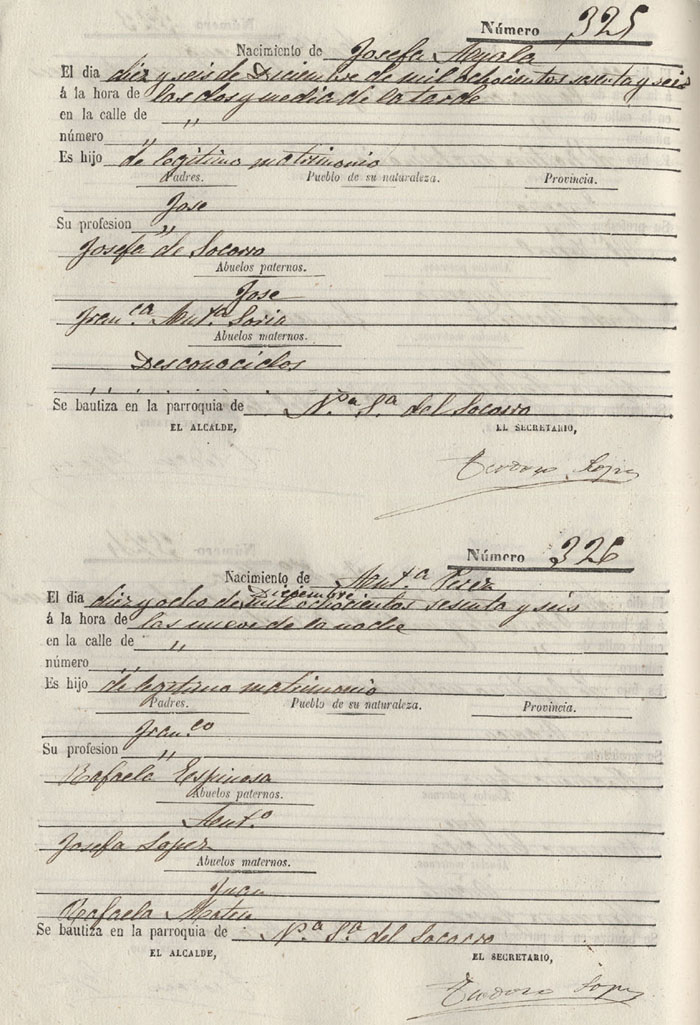 Número 325
Nacimiento de Josefa Ayala
El dia diez y seis de Diciembre de mil ochocientos sesenta y seis
á la hora de las dos y media de la tarde
en la calle de "
número "
Es hijo de legitimo matrimonio
Padres. Pueblo de su naturaleza. Provincia.
Jose
Su profesion "
Josefa de Socorro
Abuelos paternos.
Jose
Fran.ca Ant.a Soria
Abuelos maternos.
Desconocidos
Se bautiza en la parroquia de N.a S.a del Socorro
EL ALCALDE, EL SECRETARIO,
Teodoro Lopez
Número 326
Nacimiento de Ant.a Perez
Diciembre
El dia diez y ocho de mil ochocientos sesenta y seis
á la hora de las nueve de la noche
en la calle de "
número "
Es hijo de legitimo matrimonio
Padres. Pueblo de su naturaleza. Provincia.
Fran.co
Su profesion "
Rafaela Espinosa
Abuelos paternos.
Ant.o
Josefa Lopez
Abuelos maternos.
Juan
Rafaela Mateu
Se bautiza en la parroquia de N.a S.a del Socorro
EL ALCALDE, EL SECRETARIO,
Teodoro Lopez